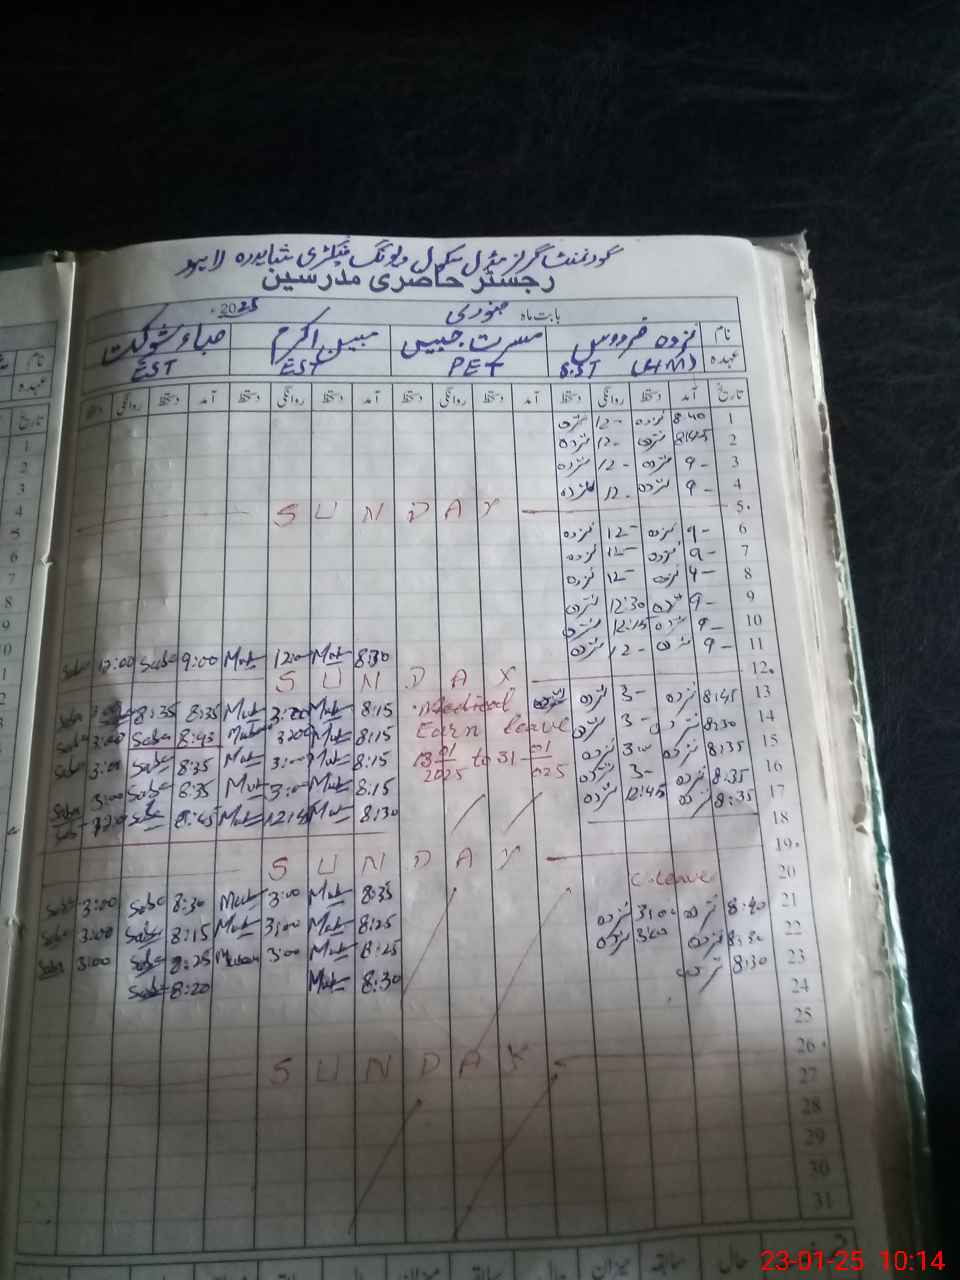 گورنمنٹ گرلز مڈل سکول ولونگ فیکٹری شاہدرہ لاہور
رجسٹر حاضری مدرسین
بابت ماہ جنوری 2025
نام نزہ فردوس مسرت جبیں مبین اکرم صباء شوکت
عہدہ S.ST (H.M) PET EST EST
تاریخ آمد دستخط روانگی دستخط آمد دستخط روانگی دستخط آمد دستخط روانگی دستخط آمد دستخط روانگی دستخط
1 8:40 نزہ 12- نزہ
2 8:45 نزہ 12- نزہ
3 9- نزہ 12- نزہ
4 9- نزہ 12- نزہ
5 SUNDAY
6 9- نزہ 12- نزہ
7 9- نزہ 12- نزہ
8 9- نزہ 12- نزہ
9 9- نزہ 12:30 نزہ
10 9- نزہ 12:15 نزہ
11 9- نزہ 12- نزہ 8:30 Mub 12:0 Mub 9:00 Saba 12:00 Saba
12 SUNDAY
13 8:45 نزہ 3- نزہ Medical 8:15 Mub 3:00 Mub 8:35 8:35 Saba
14 8:30 3- نزہ Earn leave 8:15 Mub 3:00 8:43 Saba 3:00 Saba
15 8:35 نزہ 3- نزہ 13 01/2025 to 31 01/025 8:15 Mub 3:00 Mub 8:35 Saba 3:00 Saba
16 8:35 نزہ 3- نزہ 8:15 Mub 3:00 Mub 8:35 Saba 3:00 Saba
17 8:35 نزہ 12:45 نزہ 8:30 Mub Mub 8:45 Saba
18
19 SUNDAY
20 C.leave 8:35 Mub 3:00 Mub 8:30 Saba 3:00 Saba
21 8:40 نزہ 3:00 نزہ 8:25 Mub 3:00 Mub 8:15 Saba 3:00 Saba
22 نزہ 3:00 نزہ 8:25 Mub 3:00 8:25 Saba 3:00 Saba
23 8:30 نزہ 8:30 Mub 8:20 Saba
24
25
26 SUNDAY
27
28
29
30
31
حال سابقہ میزان حال سابقہ
23-01-25 10:14